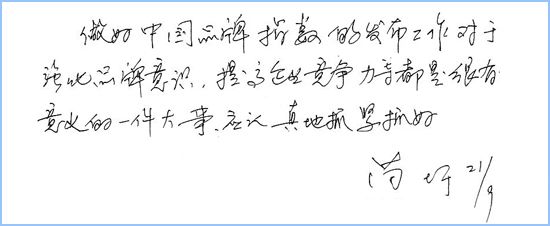 做好中国品牌指数的发布工作对于
强化品牌意识，提高企业竞争力等都是很有
意义的一件大事，应认真地抓紧抓好
21/9